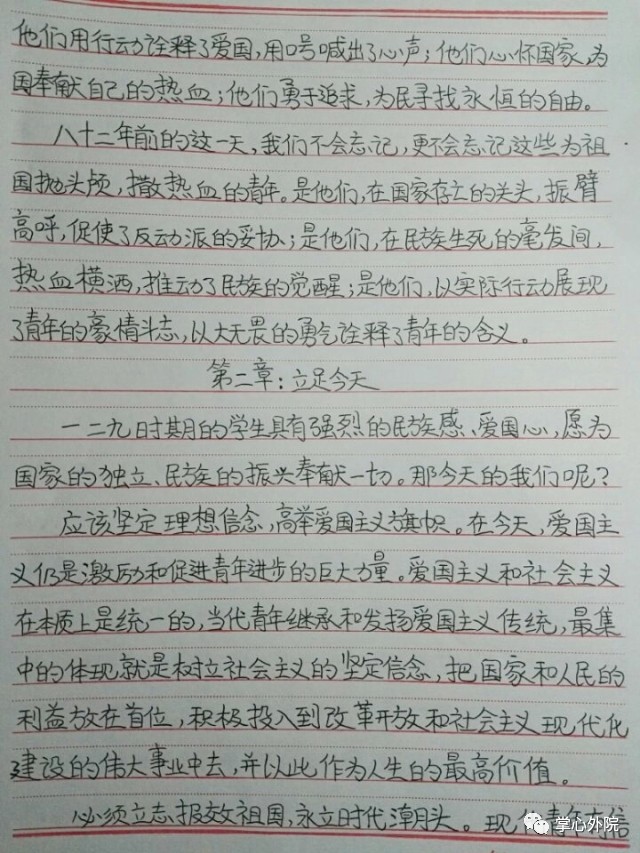 他们用行动诠释了爱国，用口号喊出了心声；他们心怀国家，为
国奉献自己的热血；他们勇于追求，为民寻找永恒的自由。
八十二年前的这一天，我们不会忘记，更不会忘记这些为祖
国抛头颅，撒热血的青年。是他们，在国家存亡的关头，振臂
高呼，促使了反动派的妥协；是他们，在民族生死的毫发间，
热血横洒，推动了民族的觉醒；是他们，以实际行动展现
了青年的豪情斗志，以大无畏的勇气诠释了青年的含义。
第二章：立足今天
一二九时期的学生具有强烈的民族感、爱国心，愿为
国家的独立、民族的振兴奉献一切。那今天的我们呢？
应该坚定理想信念，高举爱国主义旗帜。在今天，爱国主
义仍是激励和促进青年进步的巨大力量。爱国主义和社会主义
在本质上是统一的，当代青年继承和发扬爱国主义传统，最集
中的体现就是树立社会主义的坚定信念，把国家和人民的
利益放在首位，积极投入到改革开放和社会主义现代化
建设的伟大事业中去，并以此作为人生的最高价值。
必须立志报效祖国，永立时代潮头。现代青年
掌心外院